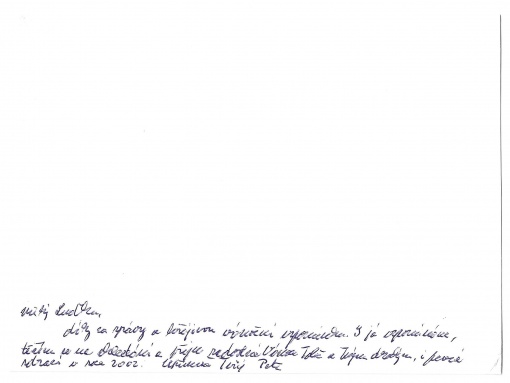 milý Luďku,
díky za zprávy a vánoční vzpomínku. I já vzpomínám,
těším se na a přeju radostné Vánoce Tobě a Tvým drahým, i pevné
zdraví v roce 2002. Tvůj Petr